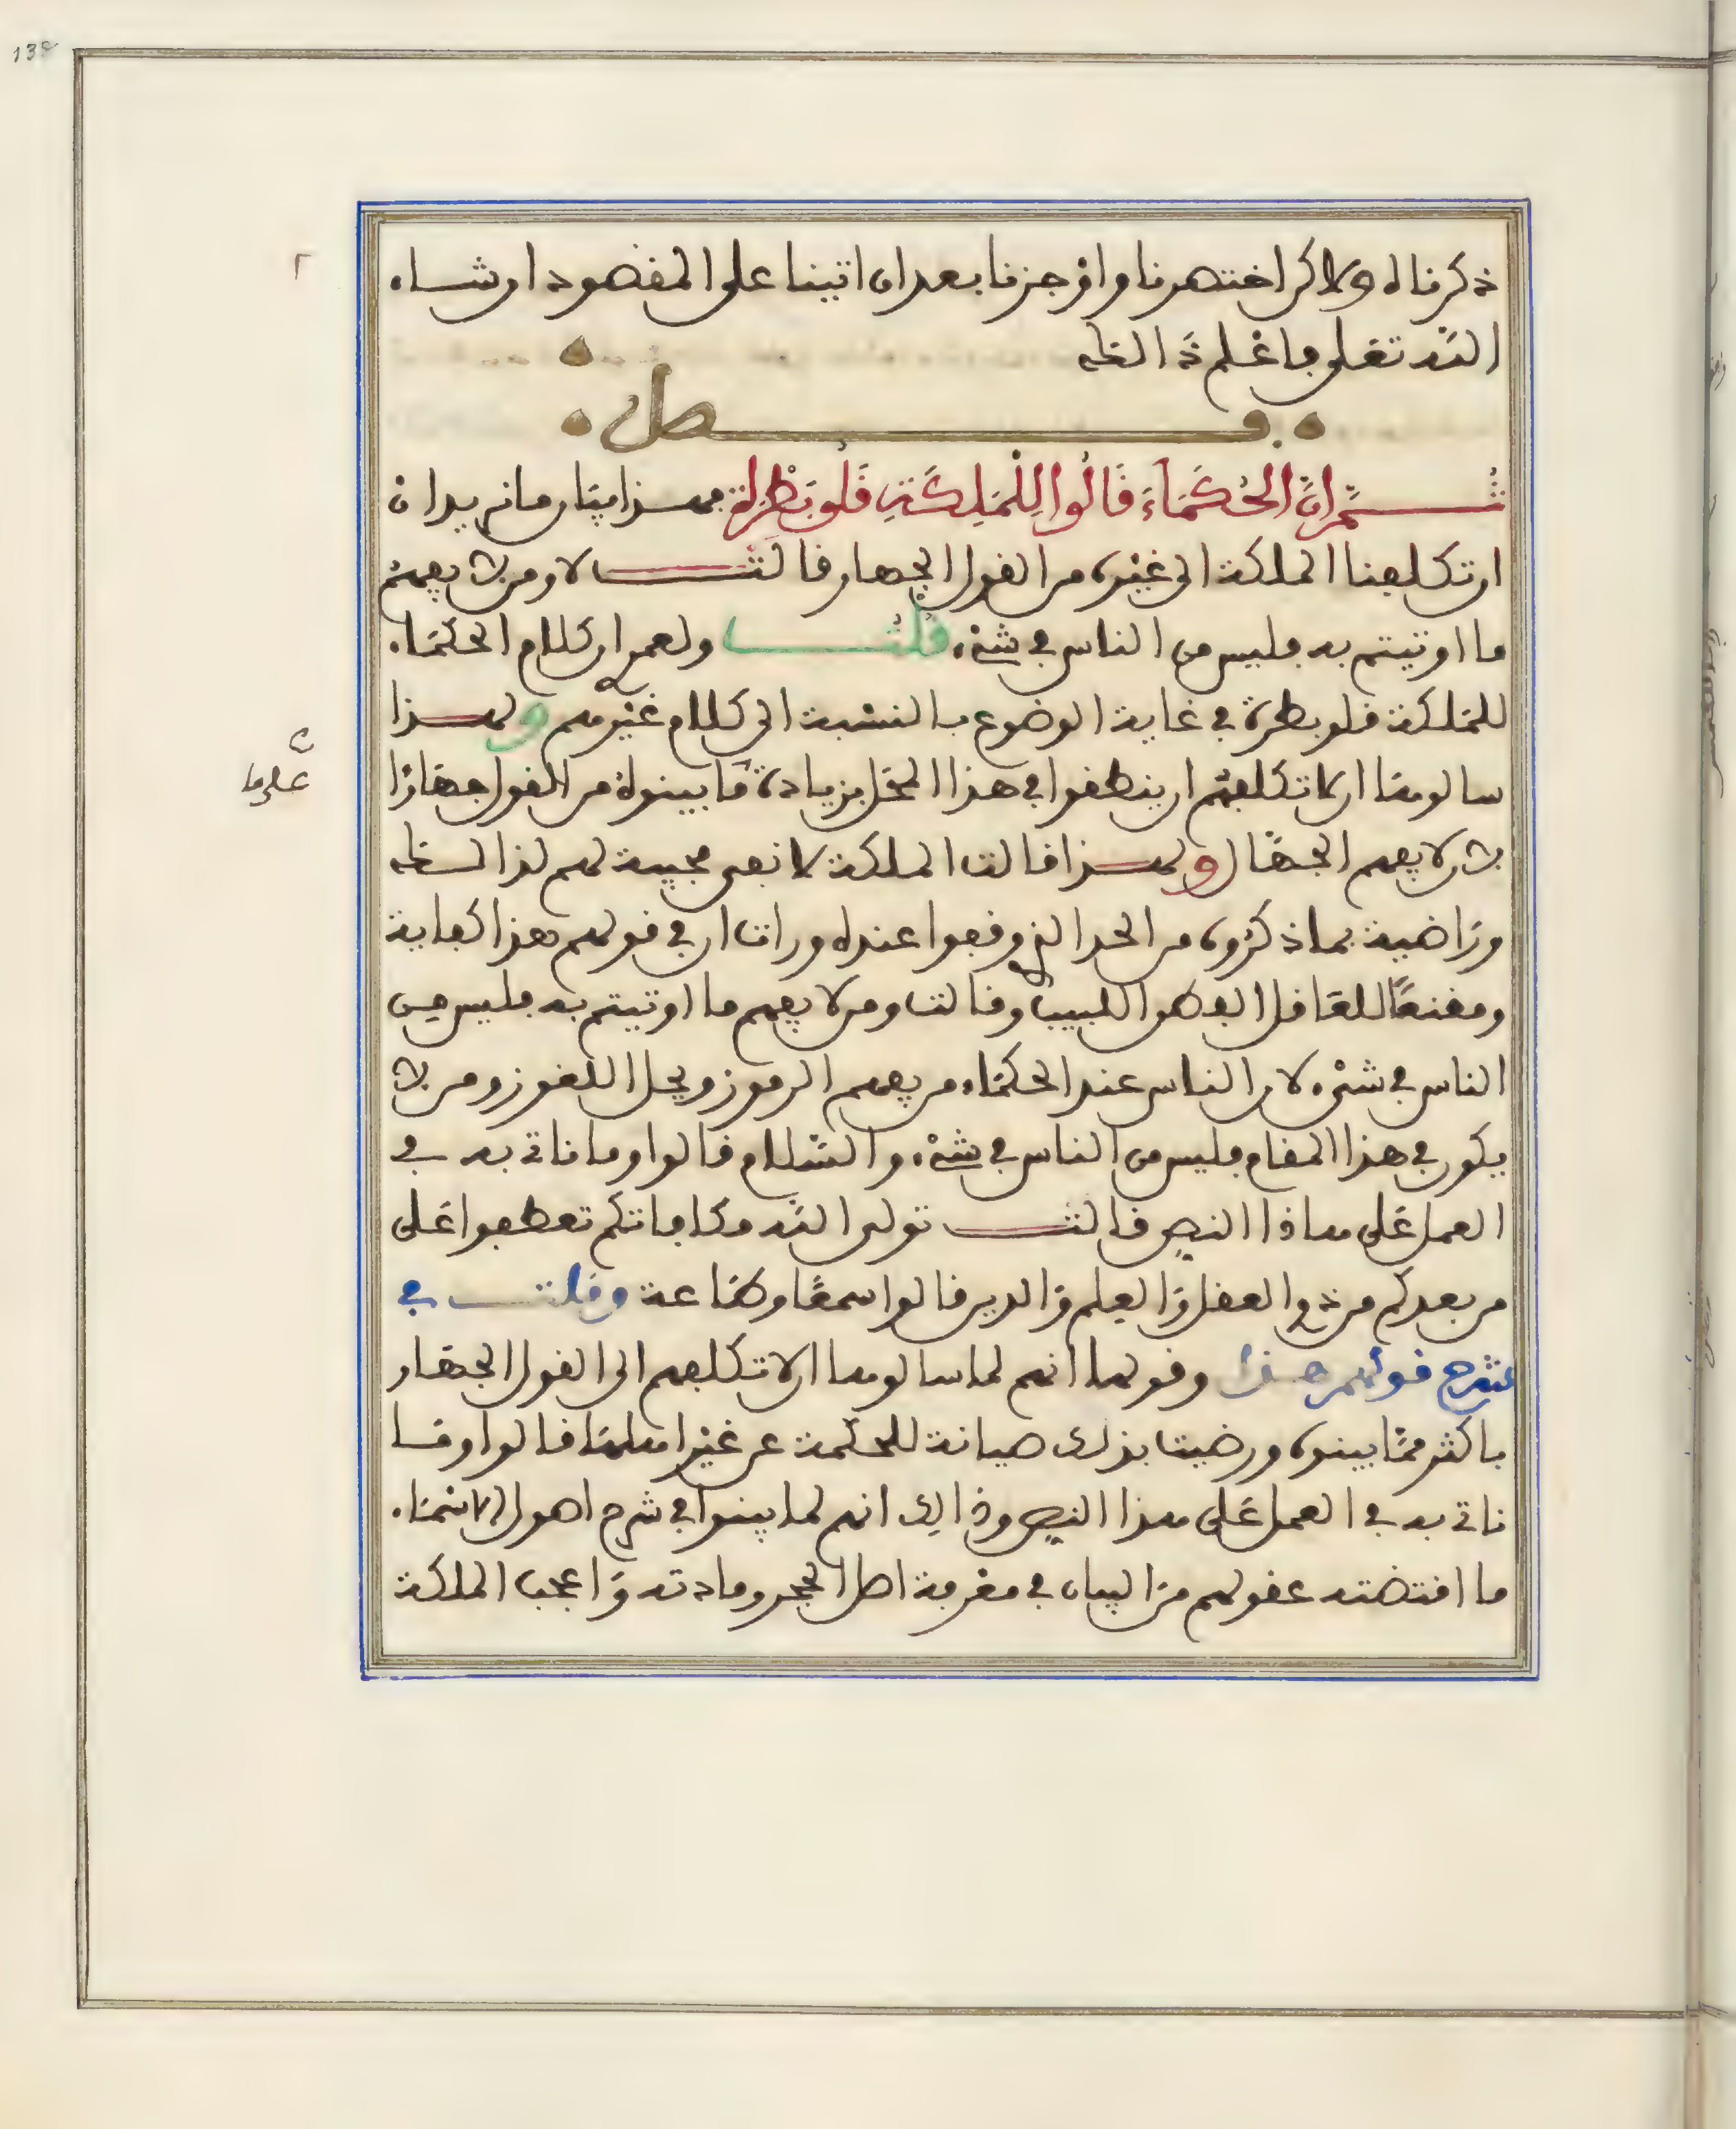 138
ذكرناه ولاكن اختصرنا واوجزنا بعد ان اتينا على المقصود ان شاء
الله تعلى فاعلم ذالك
فصل
ثم ان الحكماء قالوا للملكة قلوبطرة بهذا بيان ما نريد ان
ان تكلفنا الملكة الى غيره من القول الجهار قالت لا ومن لا يفهم
ما اوتيتم به فليس من الناس في شيء قلت ولعمر ان كلام الحكماء
للملكة قلوبطرة في غاية الوضوع بالنسبة الى كلام غيرهم ولهذا
سالوها ان لا تكلفهم ان ينطقوا في هذا المحل بزيادة ما بينوه من القول جهارا
لان لا يفهم الجهال ولهذا قالت الملكة لا نعم مجيبة لهم لذالك
وراضية بما ذكروه من الحد الذي وقفوا عنده ورات ان في قولهم هذا كفاية
ومقنعا للعاقل الفطن اللبيب وقالت ومن لا يفهم ما اوتيتم به فليس من
الناس في شيء لان الناس عند الحكماء من يفهم الرموز ويحل اللغوز ومن لا
يكون في هذا المقام فليس من الناس في شيء والسلام قالوا وما ناتي به في
العمل على هاذا النص قالت تولى الله مكافاتكم تعطفوا على
من بعدكم من ذوي العقل والعلم والدين قالوا سمعا وطاعة وقلت في
شرح قولهم هذا وقولها انهم لما سالوها الا تكلفهم الى القول الجهار
باكثر مما بينوه ورضيت بذلك صيانة للحكمة عن غير اهلها قالوا وما
ناتي به في العمل على هذا النص وذالك انهم لما بينوا في شرح اصول الاشياء
ما اقتضته عقولهم من البيان في معرفة اصل الحجر ومادته واعجب الملكة
على ما